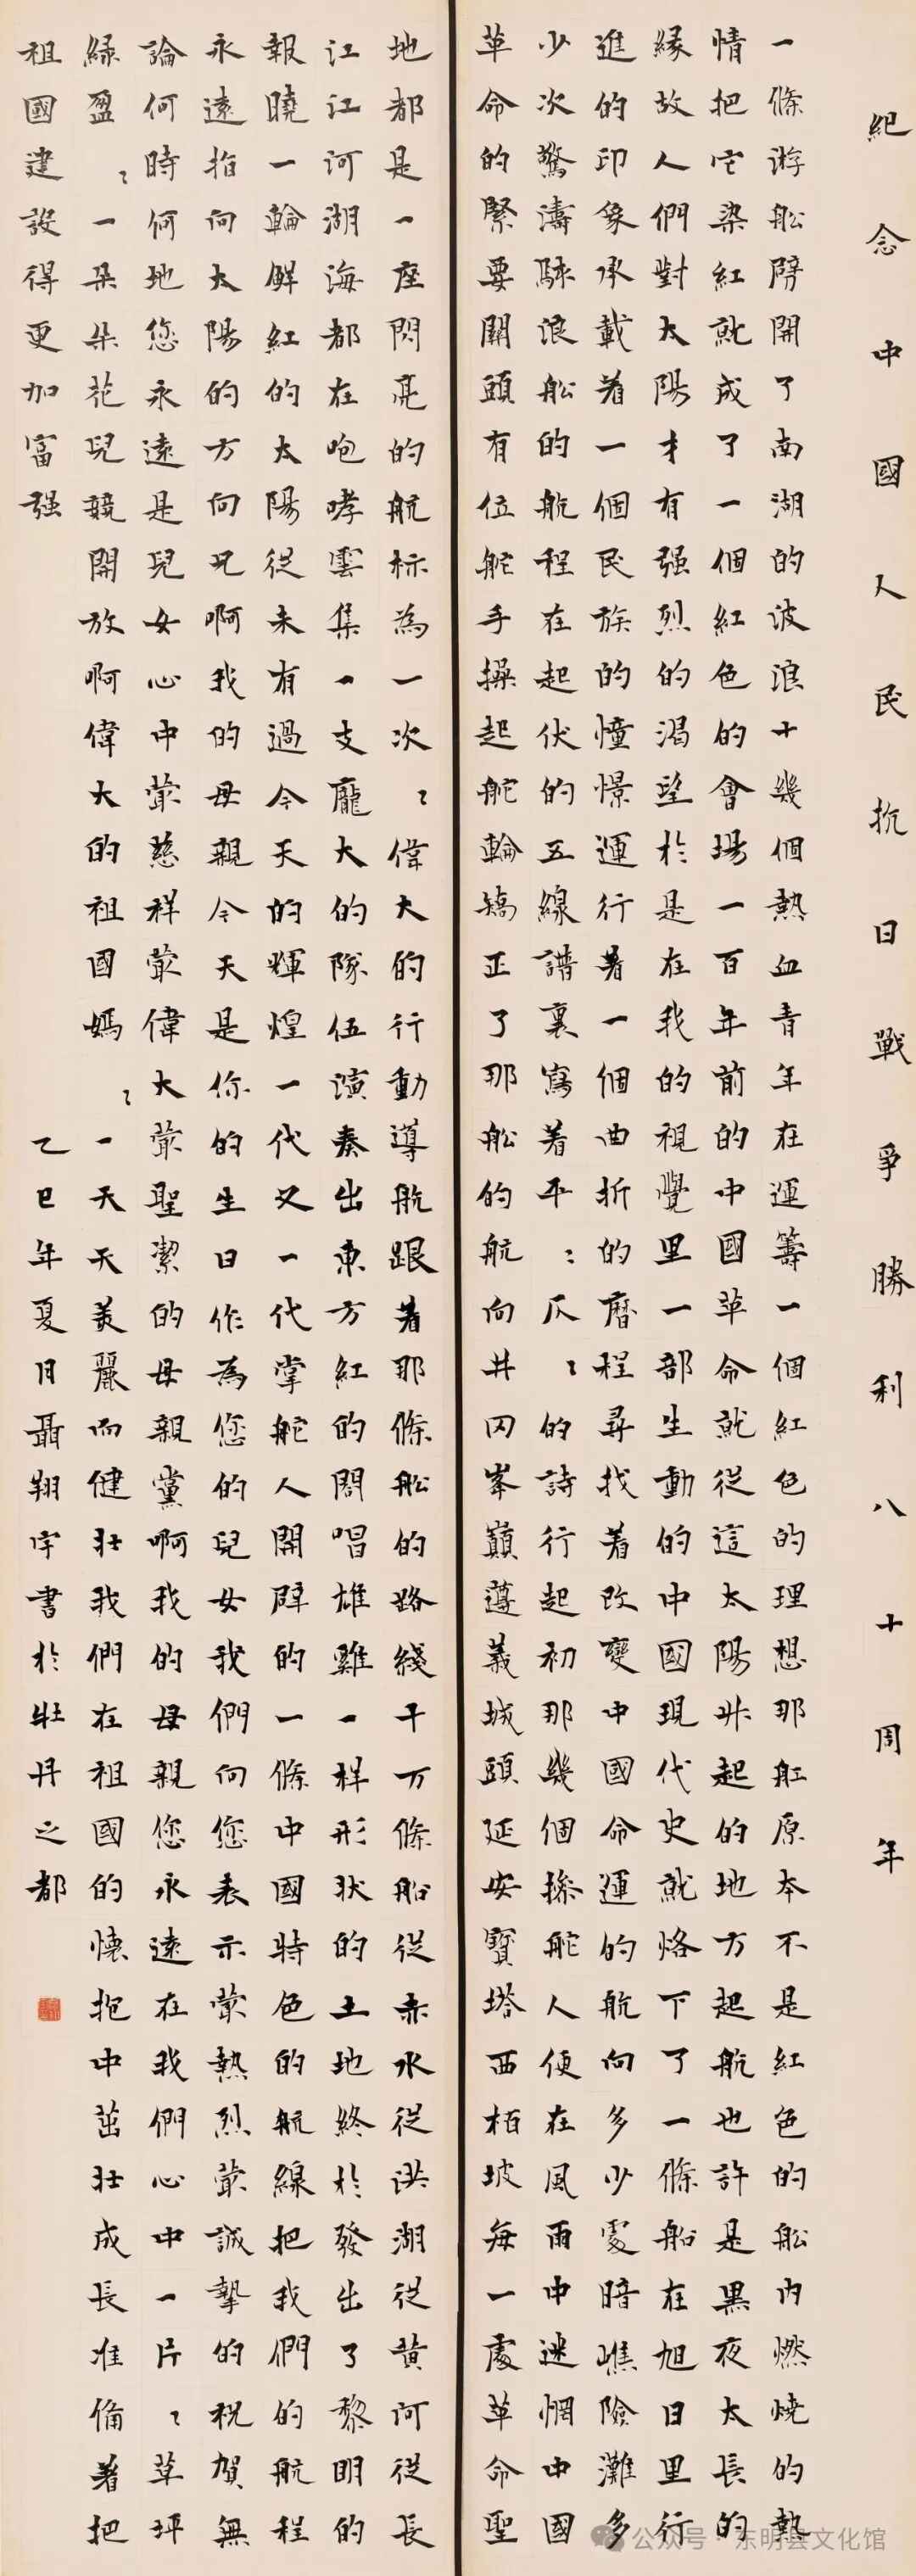 紀念中國人民抗日戰爭勝利八十周年
一條游船劈開了南湖的波浪十幾個熱血青年在運籌一個紅色的理想那舡原本不是紅色的船内燃燒的熱
情把它染紅就成了一個紅色的會場一百年前的中國革命就從這太陽升起的地方起航也許是黑夜太長的
緣故人們對太陽才有强烈的渴望於是在我的視覺里一部生動的中國現代史就烙下了一條船在旭日里行
進的印象承載着一個民族的憧憬運行著一個曲折的曆程尋找着改變中國命運的航向多少處暗嶕險灘多
少次驚濤駭浪船的航程在起伏的五線譜裏寫着平〻仄〻的詩行起初那幾個操舵人便在風雨中迷惘中國
革命的緊要關頭有位舵手操起舵輪矯正了那船的航向井冈峯巔遵義城頭延安寶塔西柏坡每一處革命聖
地都是一座閃亮的航标為一次〻偉大的行動導航跟著那條船的路綫千万條船從赤水從洪湖從黄河從長
江江河湖海都在咆哮雲集一支龐大的隊伍演奏出東方紅的閤唱雄雞一樣形狀的土地終於發出了黎明的
報曉一輪鮮紅的太陽從未有過今天的輝煌一代又一代掌舵人開辟的一條中國特色的航線把我們的航程
永遠指向太陽的方向兄啊我的母親今天是你的生日作為您的兒女我們向您表示最熱烈最誠摯的祝賀無
論何時何地您永遠是兒女心中最慈祥最偉大最聖潔的母親黨啊我的母親您永遠在我們心中一片〻草坪
綠盈〻一朵朵花兒競開放啊偉大的祖國媽〻一天天美麗而健壮我們在祖國的懷抱中茁壮成長准俻著把
祖國建設得更加富强
乙巳年夏月聶翔宇書於牡丹之都
公众号·东明县文化馆